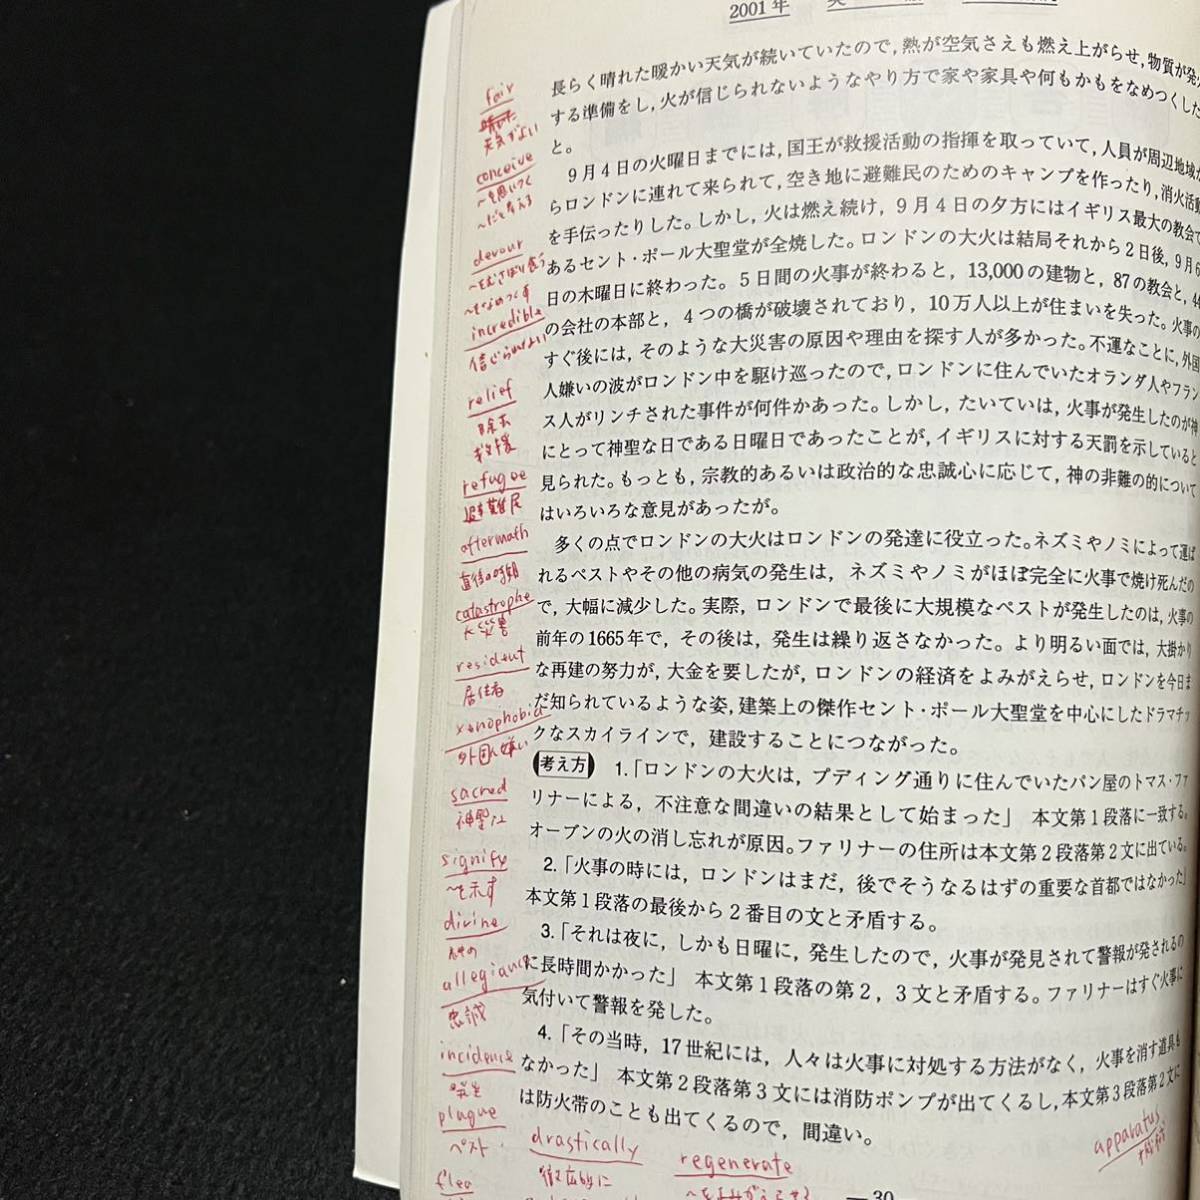 2001年
長らく晴れた暖かい天気が続いていたので，熱が空気さえも燃え上がらせ，物質が発火
する準備をし，火が信じられないようなやり方で家や家具や何もかもをなめつくした
と。
9月4日の火曜日までには，国王が救援活動の指揮を取っていて，人員が周辺地域か
らロンドンに連れて来られて，空き地に避難民のためのキャンプを作ったり，消火活動
を手伝ったりした。しかし，火は燃え続け，9月4日の夕方にはイギリス最大の教会で
あるセント・ポール大聖堂が全焼した。ロンドンの大火は結局それから2日後，9月6
日の木曜日に終わった。5日間の火事が終わると，13,000の建物と，87の教会と，44
の会社の本部と，4つの橋が破壊されており，10万人以上が住まいを失った。火事の
すぐ後には，そのような大災害の原因や理由を探す人が多かった。不運なことに，外国
人嫌いの波がロンドン中を駆け巡ったので，ロンドンに住んでいたオランダ人やフラン
ス人がリンチされた事件が何件かあった。しかし，たいていは，火事が発生したのが神
にとって神聖な日である日曜日であったことが，イギリスに対する天罰を示していると
見られた。もっとも，宗教的あるいは政治的な忠誠心に応じて，神の非難の的について
はいろいろな意見があったが。
多くの点でロンドンの大火はロンドンの発達に役立った。ネズミやノミによって運ば
れるペストやその他の病気の発生は，ネズミやノミがほぼ完全に火事で焼け死んだの
で，大幅に減少した。実際，ロンドンで最後に大規模なペストが発生したのは，火事の
前年の1665年で，その後は，発生は繰り返さなかった。より明るい面では，大掛かり
な再建の努力が，大金を要したが，ロンドンの経済をよみがえらせ，ロンドンを今日ま
だ知られているような姿，建築上の傑作セント・ポール大聖堂を中心にしたドラマチッ
クなスカイラインで，建設することにつながった。
考え方 1.「ロンドンの大火は，プディング通りに住んでいたパン屋のトマス・ファ
リナーによる，不注意な間違いの結果として始まった」 本文第1段落に一致する。
オーブンの火の消し忘れが原因。ファリナーの住所は本文第2段落第2文に出ている。
2.「火事の時には，ロンドンはまだ，後でそうなるはずの重要な首都ではなかった」
本文第1段落の最後から2番目の文と矛盾する。
3.「それは夜に，しかも日曜に，発生したので，火事が発見されて警報が発されるの
に長時間かかった」 本文第1段落の第2，3文と矛盾する。ファリナーはすぐ火事に
気付いて警報を発した。
4.「その当時，17世紀には，人々は火事に対処する方法がなく，火事を消す道具も
なかった」 本文第2段落第3文には消防ポンプが出てくるし，本文第3段落第2文に
は防火帯のことも出てくるので，間違い。
fair
天気がよい
conceive
～を思いつく
～だと考える
devour
～をむさぼり食う
～をなめつくす
incredible
信じられない
relief
除去
救援
refugee
避難民
aftermath
直後の時期
catastrophe
大災害
resident
居住者
xenophobia
外国人嫌い
sacred
神聖な
signify
～を示す
divine
神の
allegiance
忠誠
incidence
発生
plague
ペスト
flea
drastically
徹底的に
regenerate
～をよみがえらせる
apparatus
—30